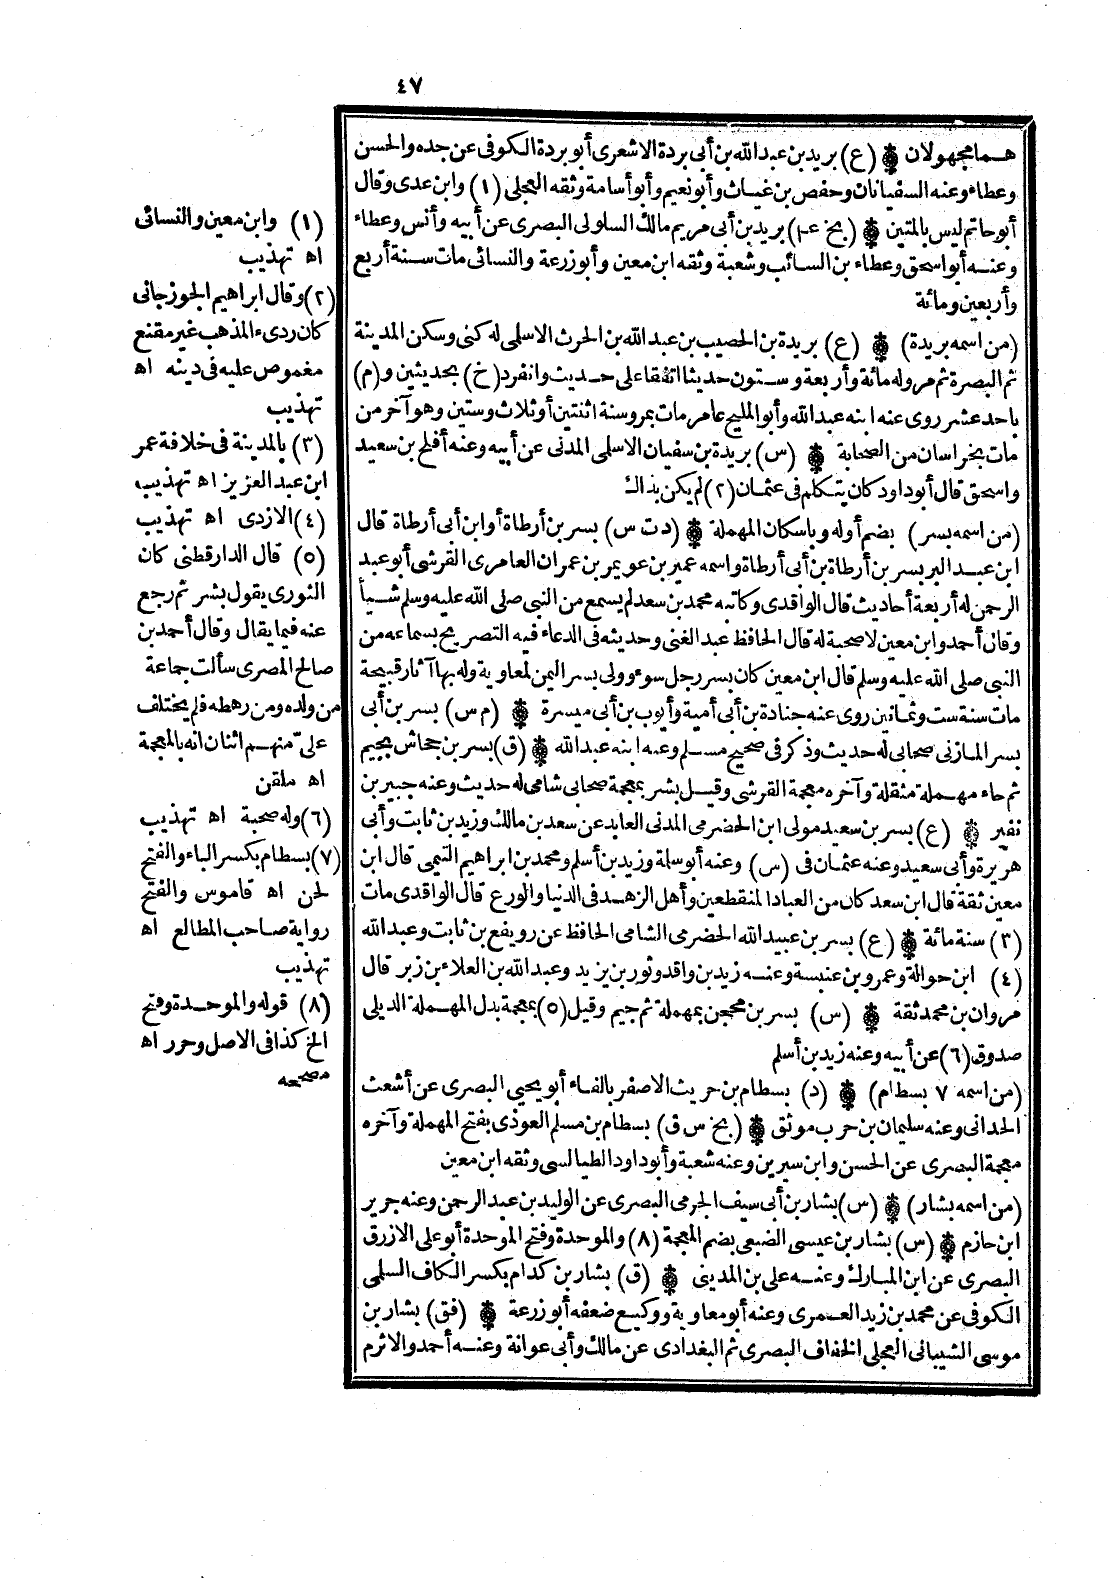 ٤٧
هما مجهولان (ع) بريد بن عبد الله بن أبى بردة الاشعرى أبو بردة الكوفى عن جده والحسن
وعطاء وعنه السفيانان وحفص بن غياث وأبو نعيم وأبو أسامة وثقه العجلى (١) وابن عدى وقال
أبو حاتم ليس بالمتين (بخ عا) بريد بن أبى مريم مالك السلولى البصرى عن أبيه وأنس وعطاء
وعنه أبو اسحق وعطاء بن السائب وشعبة وثقه ابن معين وأبو زرعة والنسائى مات سنة أربع
وأربعين ومائة
(من اسمه بريدة) (ع) بريدة بن الحصيب بن عبد الله بن الحرث الاسلمى له كنى وسكن المدينة
ثم البصرة ثم مرو له مائة وأربعة وستون حديثا اتفقا على حديث وانفرد (خ) بحديثين و(م)
باحد عشر روى عنه ابنه عبد الله وأبو المليح عامر مات بمرو سنة اثنتين أو ثلاث وستين وهو آخر من
مات بخراسان من الصحابة (س) بريدة بن سفيان الاسلمى المدنى عن أبيه وعنه أفلح بن سعيد
واسحق قال أبو داود كان يتكلم فى عثمان (٢) لم يكن بذاك
(من اسمه بسر) بضم أوله وباسكان المهملة (د ت س) بسر بن أرطاة أو ابن أبى أرطاة قال
ابن عبد البر بسر بن أرطاة بن أبى أرطاة واسمه عمير بن عويمر بن عمران العامرى القرشى أبو عبد
الرحمن له أربعة أحاديث قال الواقدى وكاتبه محمد بن سعد لم يسمع من النبى صلى الله عليه وسلم شيأ
وقال أحمد وابن معين لا صحبة له قال الحافظ عبد الغنى وحديثه فى الدعاء فيه التصريح بسماعه من
النبى صلى الله عليه وسلم قال ابن معين كان بسر رجل سوء وولى بسر اليمن لمعاوية وله بها آثار قبيحة
مات سنة ست وثمانين روى عنه جنادة بن أبى أمية وأيوب بن أبى ميسرة (م س) بسر بن أبى
بسر المازنى صحابى له حديث وذكر فى صحيح مسلم وعنه ابنه عبد الله (ق) بسر بن جحاش بجيم
ثم حاء مهملة مثقلة وآخره معجمة القرشى وقيل بشر بمعجمة صحابى شامى له حديث وعنه جبير بن
نفير (ع) بسر بن سعيد مولى ابن الحضرمى المدنى العابد عن سعد بن مالك وزيد بن ثابت وأبى
هريرة وأبى سعيد وعنه عثمان فى (س) وعنه أبو سلمة وزيد بن أسلم ومحمد بن ابراهيم التيمى قال ابن
معين ثقة قال ابن سعد كان من العباد المنقطعين وأهل الزهد فى الدنيا والورع قال الواقدى مات
(٣) سنة مائة (ع) بسر بن عبيد الله الحضرمى الشامى الحافظ عن رويفع بن ثابت وعبد الله
(٤) ابن حوالة وعمرو بن عنبسة وعنه زيد بن واقد وثور بن يزيد وعبد الله بن العلاء بن زبر قال
مروان بن محمد ثقة (س) بسر بن محجن بمهملة ثم جيم وقيل (٥) بمعجمة بدل المهملة الديلى
صدوق (٦) عن أبيه وعنه زيد بن أسلم
(من اسمه ٧ بسطام) (د) بسطام بن حريث الاصفر بالفاء أبو يحيى البصرى عن أشعث
الحدانى وعنه سليمان بن حرب موثق (بخ س ق) بسطام بن مسلم العوذى بفتح المهملة وآخره
معجمة البصرى عن الحسن وابن سيرين وعنه شعبة وأبو داود الطيالسى وثقه ابن معين
(من اسمه بشار) (س) بشار بن أبى سيف الجرمى البصرى عن الوليد بن عبد الرحمن وعنه جرير
ابن حازم (س) بشار بن عيسى الضبعى بضم المعجمة (٨) والموحدة وفتح الموحدة أبو على الازرق
البصرى عن ابن المبارك وعنه على بن المدينى (ق) بشار بن كدام بكسر الكاف السلمى
الكوفى عن محمد بن زيد العمرى وعنه أبو معاوية ووكيع ضعفه أبو زرعة (فق) بشار بن
موسى الشيبانى العجلى الخفاف البصرى ثم البغدادى عن مالك وأبى عوانة وعنه أحمد والاثرم
(١) وابن معين والنسائى
اه تهذيب
(٢) وقال ابراهيم الجوزجانى
كان ردىء المذهب غير مقنع
مغموص عليه فى دينه اه
تهذيب
(٣) بالمدينة فى خلافة عمر
ابن عبد العزيز اه تهذيب
(٤) الازدى اه تهذيب
(٥) قال الدارقطنى كان
الثورى يقول بشر ثم رجع
عنه فيما يقال وقال أحمد بن
صالح المصرى سألت جماعة
من ولده ومن رهطه فلم يختلف
على منهم اثنان انه بالمعجمة
اه ملقن
(٦) وله صحبة اه تهذيب
(٧) بسطام بكسر الباء والفتح
لحن اه قاموس والفتح
رواية صاحب المطالع اه
تهذيب
(٨) قوله والموحدة وفتح
الخ كذا فى الاصل وحرر اه
مصححه